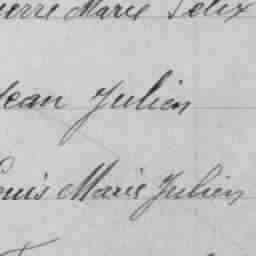 ierre Marie Félix
Jean Julien
ouis Marie Julien